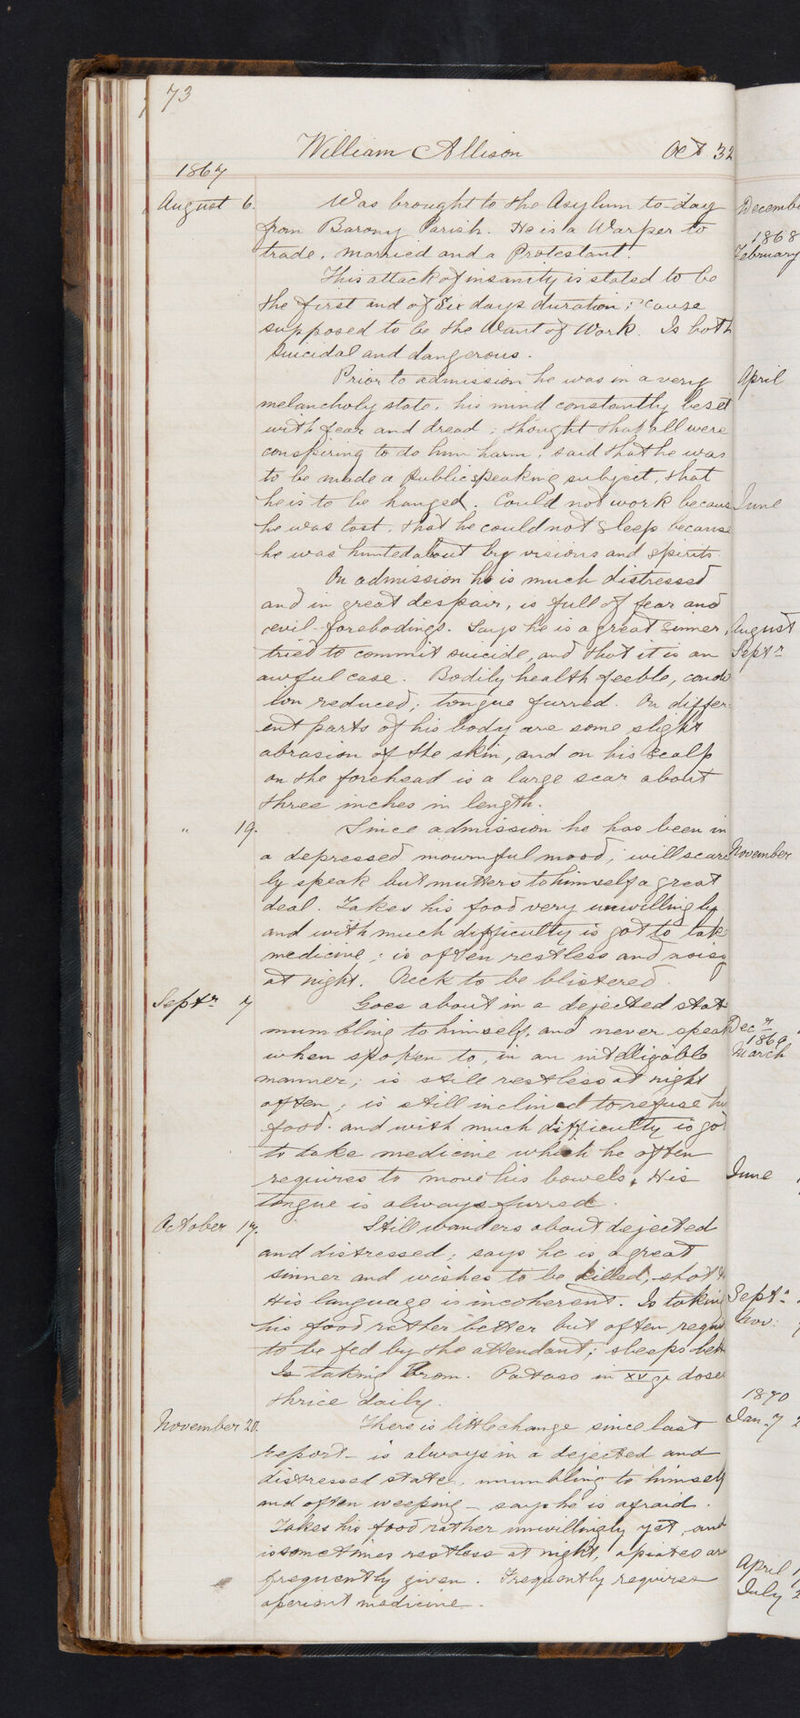 73
William Allison Oct 32
1867
August 6. Was brought to the Asylum to-day
from Barony Parish. He is a Warper to
trade, married and a Protestant.
This attack of insanity is stated to be
the first and of Six days duration; cause
supposed to be the Want of Work. Is both
Suicidal and dangerous.
Prior to admission he was in a very
melancholy state, his mind constantly beset
with fear and dread; thought that all were
conspiring to do him harm; said that he was
to be made a Public speaking subject, that
he is to be hanged. Could not work becaus
he was lost, that he could not sleep because
he was hunted about by visions and spirits.
On admission he is much distressed
and in great despair, is full of fear and
evil-forebodings. Says he is a great sinner,
tried to commit suicide, and that it is an
awful case. Bodily health feeble, condi
tion reduced; tongue furred. On differ
ent parts of his body are some slight
abrasion of the skin, and on his scalp
on the forehead is a large scar about
three inches in length.
" 19. Since admission he has been in
a depressed mournful mood; will scarce
ly speak but mutters to himself a great
deal. Takes his food very unwillingly
and with much difficulty is got to tak
medicine; is often restless and noisy
at night. Neck to be blistered.
Septr 7 Goes about in a dejected stat
mumbling to himself, and never speak
when spoken to, in an intelligable
manner; is still restless at night
often; is still inclined to refuse his
food. and with much difficulty is got
to take medicine which he often
requires to move his bowels. His
tongue is always furred.
October 17. Still wanders about dejected
and distressed; says he is a great
sinner and wishes to be killed, shot &
His language is incoherent. Is taking
his food rather better but often requi
to be fed by the attendant; sleeps bett
Is taking Brom. Potass in xv gr doses
thrice daily.
November 20. There is little change since last
report - is always in a dejected and
distressed state, mumbling to himself
and often weeping - says he is afraid.
Takes his food rather unwillingly yet, and
is sometimes restless at night, opiates are
frequently given. Frequently requires
aperient medicine.
Decembe
1868
February
April
June
August
Septr
November
Decr
1869
March
June
Septr
Nov:
1870
Jan.y
April
July